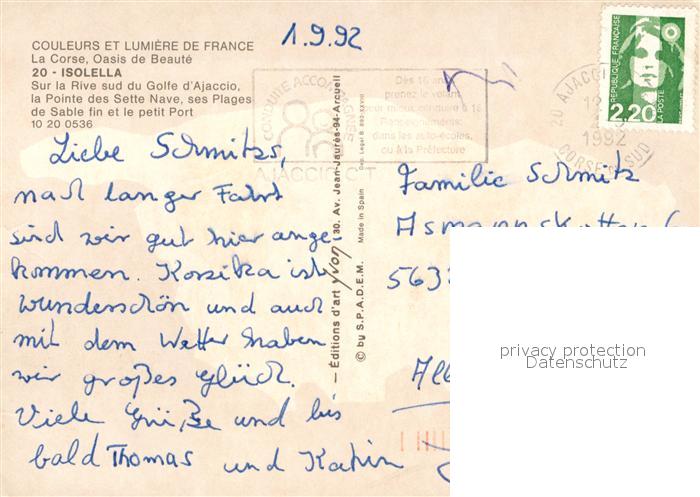 COULEURS ET LUMIÈRE DE FRANCE
La Corse, Oasis de Beauté
20 - ISOLELLA
Sur la Rive sud du Golfe d'Ajaccio,
la Pointe des Sette Nave, ses Plages
de Sable fin et le petit Port
10 20 0536
1.9.92
Liebe Schmitzs,
nach langer Fahrt
sind wir gut hier ange-
kommen. Korsika ist
wunderschön und auch
mit dem Wetter haben
wir großes Glück.
Viele Grüße und bis
bald Thomas und Katrin
— Éditions d'art yvon 130. Av. Jean-Jaurès-94-Arcueil
© by S.P.A.D.E.M. Made in Spain
CONDUITE ACCOMPAGNÉE
AJACCIO CT
Dès 16 ans
prenez le volant
pour mieux conduire à 18
Renseignements:
dans les auto-écoles,
ou à la Préfecture
20 AJACCIO
1992
CORSE DU SUD
REPUBLIQUE FRANÇAISE
LA POSTE
2,20
Familie Schmitz
563
privacy protection
Datenschutz